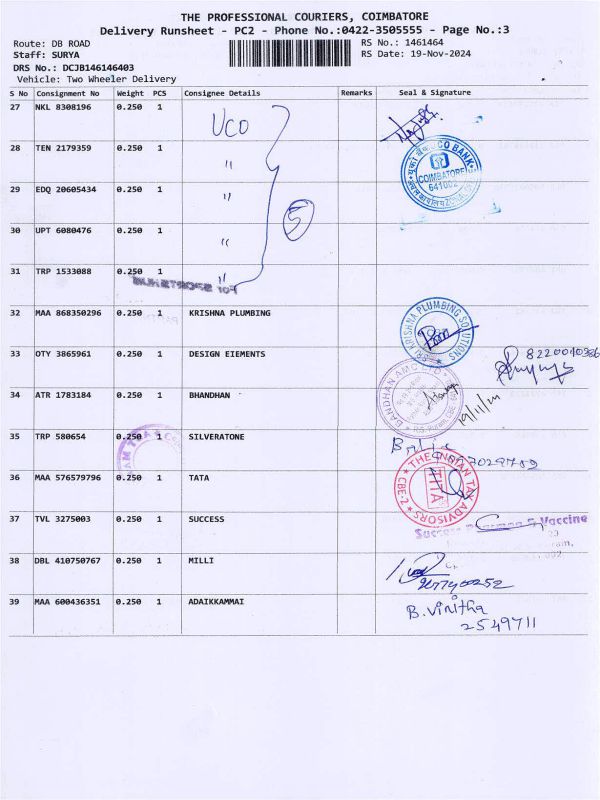 THE PROFESSIONAL COURIERS, COIMBATORE
Delivery Runsheet - PC2 - Phone No.:0422-3505555 - Page No.:3
Route: DB ROAD RS No.: 1461464
Staff: SURYA RS Date: 19-Nov-2024
DRS No.: DCJB146146403
Vehicle: Two Wheeler Delivery
S No Consignment No Weight PCS Consignee Details Remarks Seal & Signature
27 NKL 8308196 0.250 1 UCO
28 TEN 2179359 0.250 1 " CO BANK COIMBATORE 641002
29 EDQ 20605434 0.250 1 "
5
30 UPT 6080476 0.250 1 "
31 TRP 1533088 0.250 1 "
32 MAA 868350296 0.250 1 KRISHNA PLUMBING SRI KRISHNA PLUMBING SOLUTIONS
33 OTY 3865961 0.250 1 DESIGN EIEMENTS 8220010386
34 ATR 1783184 0.250 1 BHANDHAN BANDHAN AMC LTD 19/11/24
35 TRP 580654 0.250 1 SILVERATONE
36 MAA 576579796 0.250 1 TATA THE INDIAN TAX ADVISORS CBE-2 TITA
37 TVL 3275003 0.250 1 SUCCESS Success & Vaccine
38 DBL 410750767 0.250 1 MILLI
39 MAA 600436351 0.250 1 ADAIKKAMMAI B. Vinitha
2549711